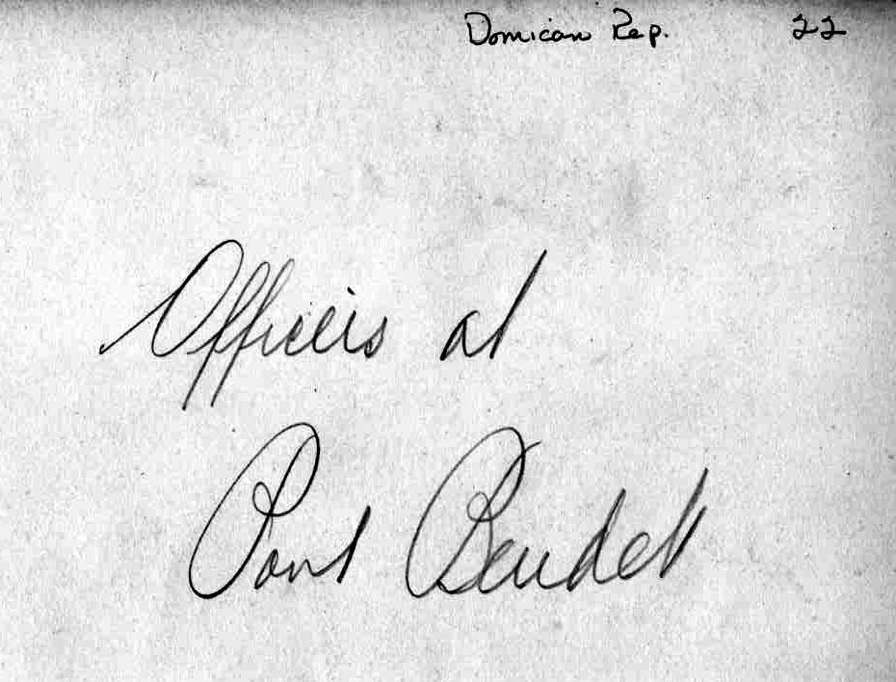 Domican Rep. 22
Officers at
Pont Beudet